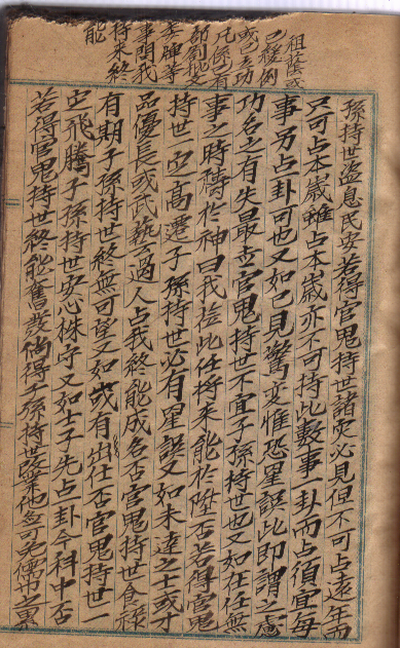 祖蔭或
已援例
或已立功
凡係少有
部劄文
委牌等
事問我
將來終
能
孫持世盜息民安若得官鬼持世諸灾必見但不可占遠年而
只可占本歲雖占本歲亦不可持此數事一卦而占須宜每
事另占卦可也又如已見驚变惟恐星誤此即謂之慮
功名之有失最官鬼持世不宜子孫持世也又如在任無
事之時禱於神曰我莅此任将來能於陞否若得官鬼
持世一定高遷子孫持世必有星誤又如未達之士或才
品優長或武藝過人占我終能成名否官鬼持世食祿
有期子孫持世終無可望又如或有出仕否官鬼持世一
定飛騰子孫持世安心株守又如士子先占卦今科中否
若得官鬼持世終能奮发倘得子孫持世改業他可免儒巾之累